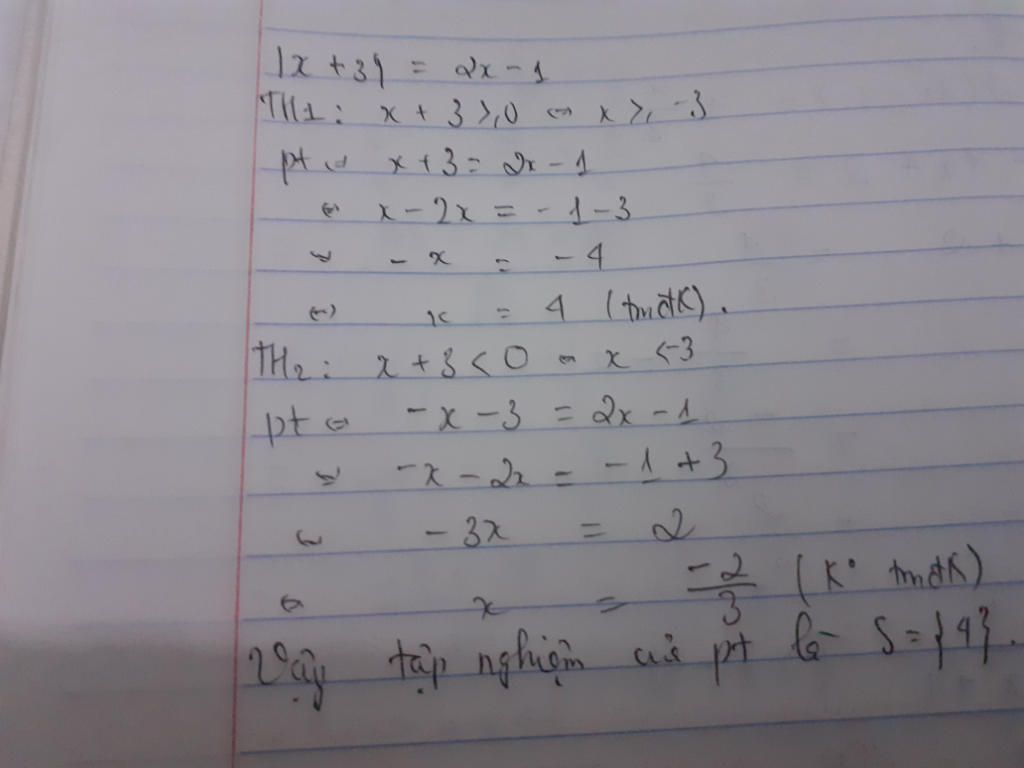 |x + 3| = 2x - 1
TH1: x + 3 ≥ 0 ⇔ x ≥ -3
pt ⇔ x + 3 = 2x - 1
⇔ x - 2x = -1 - 3
⇔ -x = -4
⇔ x = 4 (tmđk).
TH2: x + 3 < 0 ⇔ x < -3
pt ⇔ -x - 3 = 2x - 1
⇔ -x - 2x = -1 + 3
⇔ -3x = 2
⇔ x = -2/3 (K° tmđk)
Vậy tập nghiệm của pt là S = {4}.